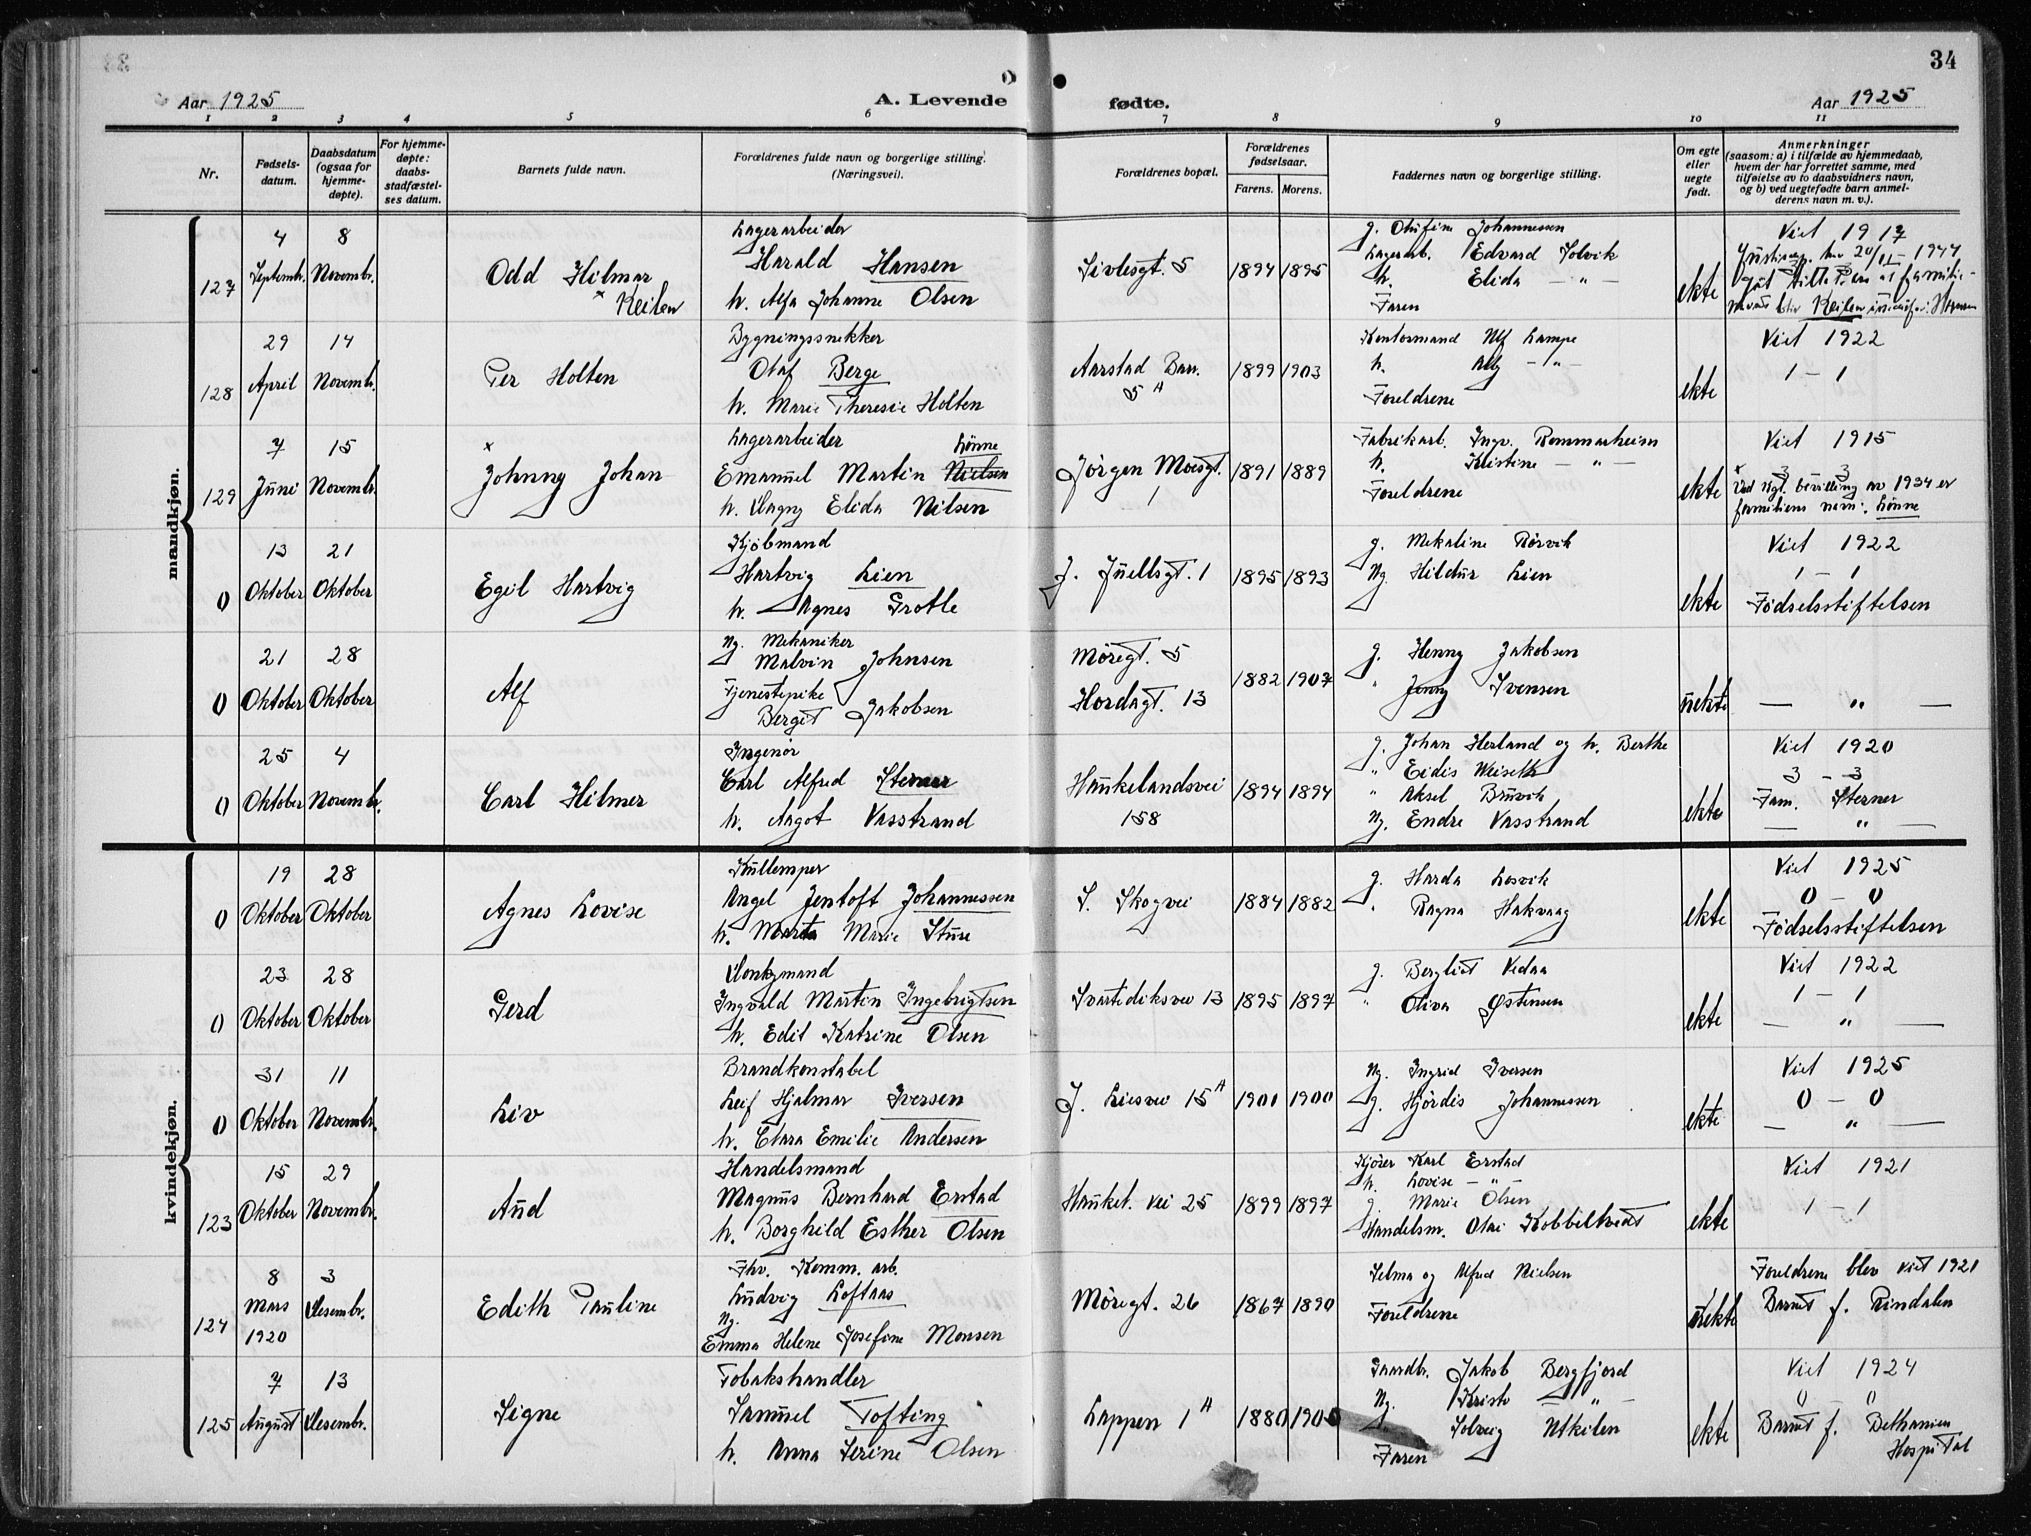 34
Aar 1925
A. Levende fødte.
Aar 1925
1 2 3 4 5 6 7 8 9 10 11
Nr.
Fødsels-
datum.
Daabsdatum
(ogsaa for
hjemme-
døpte).
For hjemme-
døpte:
daabs-
stadfæstel-
ses datum.
Barnets fulde navn.
Forældrenes fulde navn og borgerlige stilling.
(Næringsvei).
Forældrenes bopæl.
Forældrenes
fødselsaar.
Farens. Morens.
Faddernes navn og borgerlige stilling.
Om egte
eller
uegte
født.
Anmerkninger
(saasom: a) i tilfælde av hjemmedaab,
hvem der har forrettet samme, med
tilføielse av to daabsvidners navn,
og b) ved uegtefødte barn anmel-
derens navn m. v.).
mandkjøn.
127
4
Septembr.
8
Novembr.
Odd Hilmar
× Keilen
Lagerarbeider
Harald Hansen
h. Alfa Johanne Olsen
Sivlesgt. 5
1894 1895
g. Olufine Johannessen
Lagerarb. Edvard Solvik
h. Elida — " —
Faren
ekte
Viet 1917
128
29
April
14
Novembr.
Per Holten
Bygningssnikker
Olaf Berge
h. Marie Theresie Holten
Aarstad Barr.
5 A
1899 1903
Kontormand Alf Lampe
h. Aly — " —
Foreldrene
ekte
Viet 1922
1 — 1
129
7
Juni
15
Novembr.
×
Johnny Johan
Lagerarbeider Lønne
Emanuel Martin Nielsen
h. Dagny Elida Nilsen
Jørgen Moesgt.
1
1891 1889
Fabrikarb. Ingv. Rommarheim
h. Kristine — " —
Foreldrene
ekte
Viet 1915
× 3 3
Ved kgl. bevilling av 1934 er
familiens navn: Lønne
0
13
Oktober
21
Oktober
Egil Hartvig
Kjøbmand
Hartvig Lien
h. Agnes Grotle
J. Juellsgt. 1
1895 1893
g. Mekaline Rørvik
Ug. Hildur Lien
ekte
Viet 1922
1 — 1
Fødselsstiftelsen
0
21
Oktober
28
Oktober
Alf
Ug. Mekaniker
Malvin Johnsen
Tjenestepike
Berget Jakobsen
Møregt. 5
Hordagt. 13
1882 1907
g. Henny Jakobsen
" Jenny Svensen
uekte
— " —
0
25
Oktober
4
Novembr.
Carl Hilmer
Ingeniør
Carl Alfred Sterner
h. Aagot Vasstrand
Haukelandsvei
158
1894 1894
g. Johan Herland og h. Berthe
" Eidis Weiseth
" Aksel Bruvik
Ug. Endre Vasstrand
ekte
Viet 1920
3 — 3
Fam. Sterner
— " —
kvindekjøn.
0
19
Oktober
28
Oktober
Agnes Lovise
Kullemper
Angel Jentoft Johannessen
h. Marta Marie Sture
S. Skogvei
1884 1882
g. Harda Lesvik
" Ragna Hakvaag
ekte
Viet 1925
0 — 0
Fødselsstiftelsen
0
23
Oktober
28
Oktober
Gerd
Donkymand
Ingvald Martin Ingebrigtsen
h. Edit Katrine Olsen
Svartediksvei 13
1895 1897
g. Bergliot Vedaa
" Oliva Østensen
ekte
Viet 1922
1 — 1
— " —
0
31
Oktober
11
Novembr.
Liv
Brandkonstabel
Leif Hjalmar Iversen
h. Clara Emilie Andersen
J. Liesvei 15 A
1900 1900
Ug. Ingrid Iversen
g. Hjørdis Johannessen
ekte
Viet 1925
0 — 0
— " —
123
15
Oktober
29
Novembr.
Aud
Handelsmand
Magnus Bernhard Erstad
h. Borghild Esther Olsen
Haukel. vei 25
1899 1897
Kjører Karl Erstad
h. Lovise — " —
g. Marie Olsen
Handelsm. Olai Kobbeltvedt
ekte
Viet 1921
1 — 1
124
8
Mars
1920
3
Desembr.
Edith Pauline
Fhv. Komm. arb.
Ludvig Loftaas
Ug.
Emma Helene Josefine Monsen
Møregt. 26
1867 1890
Selma og Alfred Nielsen
Foreldrene
uekte
Foreldrene blev viet 1921
Barnet f. Rindalen
125
7
August
13
Desembr.
Signe
Tobakshandler
Samuel Tofting
h. Anna Serine Olsen
Lappen 1 A
1880 1905
Gaardbr. Jakob Bergfjord
Ug. Kristo — " —
g. Solveig Utkilen
Faren
ekte
Viet 1924
0 — 0
Barnet f. Bethanien
Hospital